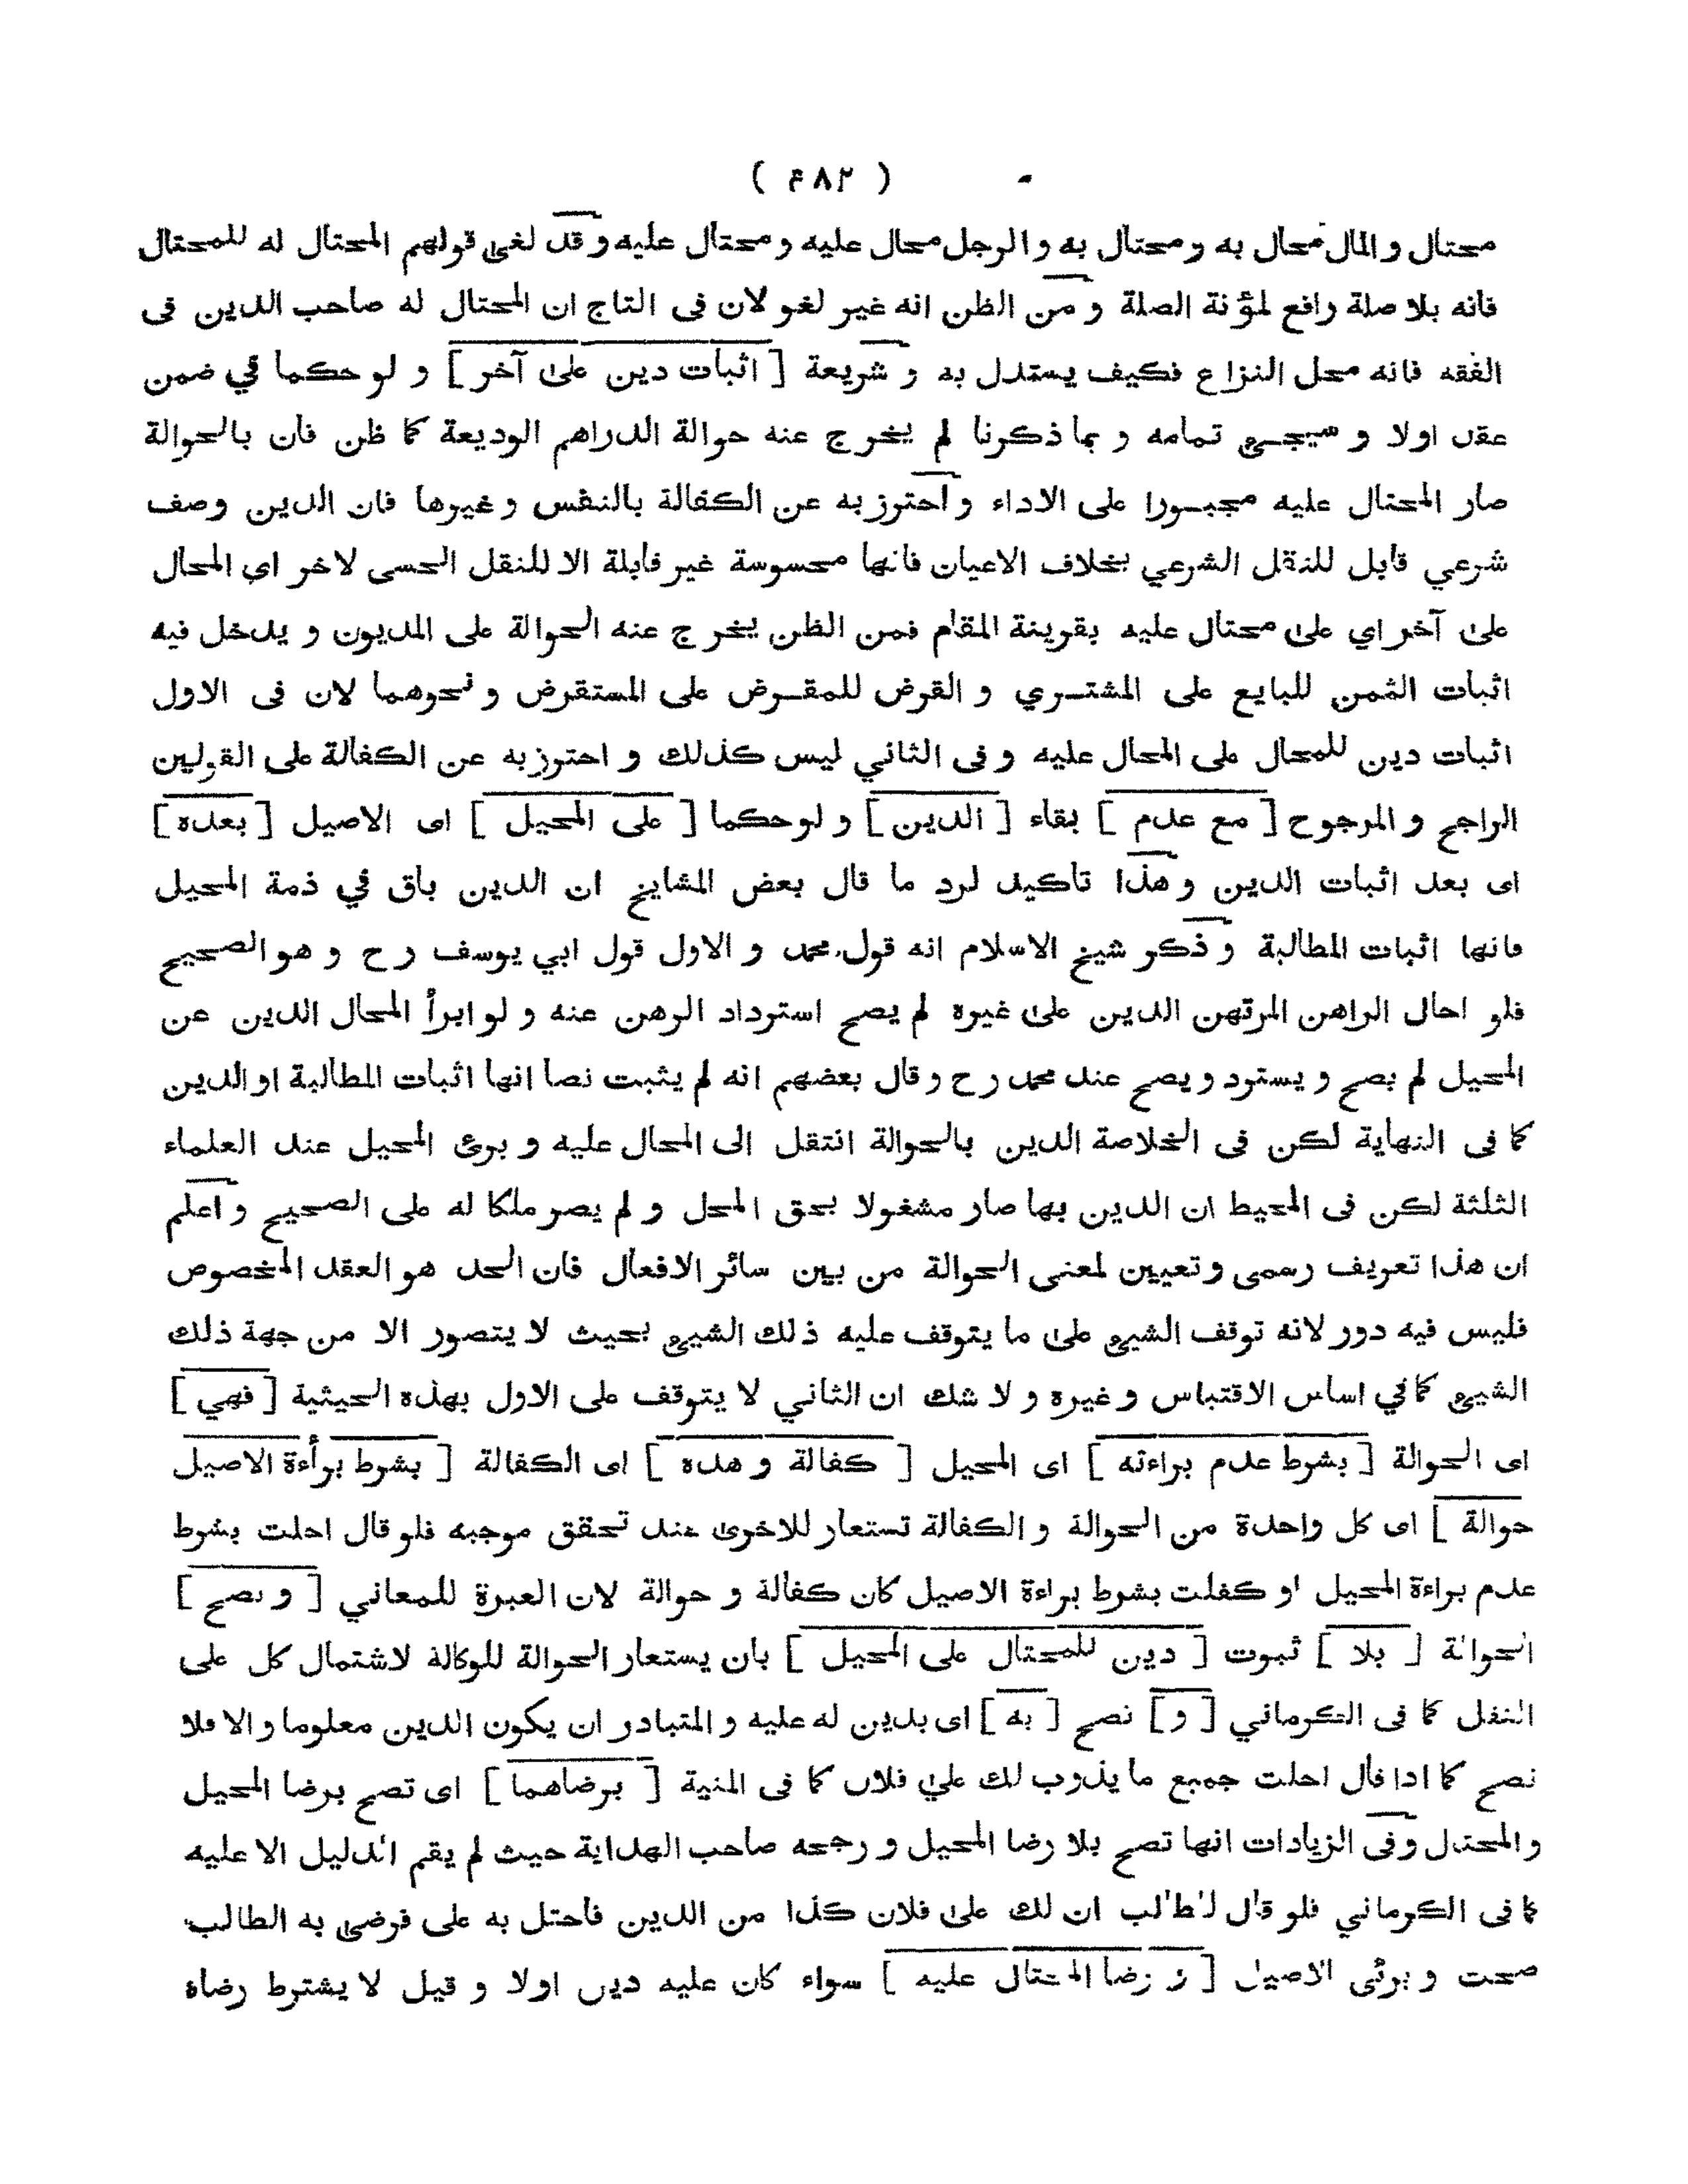 ( ۴۸۲ )
محتال و المال محال به و محتال به و الرجل محال عليه و محتال عليه و قد لغى قولهم المحتال له للمحتال
فانه بلا صلة رافع لمؤنة الصلة و من الظن انه غير لغو لان فى التاج ان المحتال له صاحب الدين فى
الفقه فانه محل النزاع فكيف يستدل به و شريعة [ اثبات دين على آخر ] و لو حكما في ضمن
عقد اولا و سيجىء تمامه و بما ذكرنا لم يخرج عنه حوالة الدراهم الوديعة كما ظن فان بالحوالة
صار المحتال عليه مجبورا على الاداء و احترز به عن الكفالة بالنفس و غيرها فان الدين وصف
شرعي قابل للنقل الشرعي بخلاف الاعيان فانها محسوسة غير قابلة الا للنقل الحسى لاخر اي المحال
على آخر اي على محتال عليه بقرينة المقام فمن الظن يخرج عنه الحوالة على المديون و يدخل فيه
اثبات الثمن للبايع على المشتري و القرض للمقرض على المستقرض و نحوهما لان فى الاول
اثبات دين للمحال على المحال عليه و فى الثاني ليس كذلك و احترز به عن الكفالة على القولين
الراجح و المرجوح [ مع عدم ] بقاء [ الدين ] و لو حكما [ على المحيل ] اى الاصيل [ بعده ]
اى بعد اثبات الدين و هذا تأكيد لرد ما قال بعض المشايخ ان الدين باق في ذمة المحيل
فانها اثبات المطالبة و ذكر شيخ الاسلام انه قول محمد و الاول قول ابي يوسف رح و هو الصحيح
فلو احال الراهن المرتهن الدين على غيره لم يصح استرداد الرهن عنه و لو ابرأ المحال الدين عن
المحيل لم يصح و يسترد و يصح عند محمد رح و قال بعضهم انه لم يثبت نصا انها اثبات المطالبة او الدين
كما فى النهاية لكن فى الخلاصة الدين بالحوالة انتقل الى المحال عليه و برئ المحيل عند العلماء
الثلثة لكن فى المحيط ان الدين بها صار مشغولا بحق المحل و لم يصر ملكا له على الصحيح و اعلم
ان هذا تعريف رسمى و تعيين لمعنى الحوالة من بين سائر الافعال فان الحد هو العقد المخصوص
فليس فيه دور لانه توقف الشيئ على ما يتوقف عليه ذلك الشيئ بحيث لا يتصور الا من جهة ذلك
الشيئ كما في اساس الاقتباس و غيره و لا شك ان الثاني لا يتوقف على الاول بهذه الحيثية [ فهي ]
اى الحوالة [ بشرط عدم براءته ] اى المحيل [ كفالة و هذه ] اى الكفالة [ بشرط برأءة الاصيل
حوالة ] اى كل واحدة من الحوالة و الكفالة تستعار للاخرى عند تحقق موجبه فلو قال احلت بشرط
عدم براءة المحيل او كفلت بشرط براءة الاصيل كان كفالة و حوالة لان العبرة للمعاني [ و تصح ]
الحوالة [ بلا ] ثبوت [ دين للمحتال على المحيل ] بان يستعار الحوالة للوكالة لاشتمال كل على
النقل كما فى الكرماني [ و ] تصح [ به ] اى بدين له عليه و المتبادر ان يكون الدين معلوما و الا فلا
تصح كما اذا قال احلت جميع ما يذوب لك علي فلان كما فى المنية [ برضاهما ] اى تصح برضا المحيل
و المحتال و فى الزيادات انها تصح بلا رضا المحيل و رجحه صاحب الهداية حيث لم يقم الدليل الا عليه
كما فى الكرماني فلو قال لطالب ان لك على فلان كذا من الدين فاحتل به على فرضى به الطالب
صحت و برئى الاصيل [ و رضا المحتال عليه ] سواء كان عليه دين اولا و قيل لا يشترط رضاه